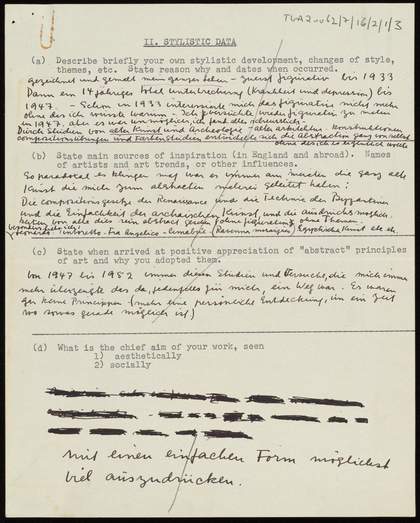 TGA 20062/7/16/2/1/3
II. STYLISTIC DATA
(a) Describe briefly your own stylistic development, changes of style,
themes, etc. State reason why and dates when occurred.
gezeichnet und gemalt mein ganzes Leben - zuerst figurativ bis 1933
Dann ein 14 jähriges total Unterbrechung (Krankheit und depression) bis
1947. - Schon in 1933 interessierte mich das figurative nicht mehr
ohne dass ich wusste warum - Ich versuchte wieder figurativ zu malen
in 1947. aber es war unmöglich, ich fand alles scheusslich.
Durch Studien von alte Kunst und Archeologie - alten architekten - Konstruktionen
compositionsübungen und Farben Studien, entwickelte sich die abstraction ganz von selbst
ohne dass ich es eigentlich wollte
(b) State main sources of inspiration (in England and abroad). Names
of artists and art trends, or other influences.
So paradoxal es klingen mag war es immer am meisten die ganz alte
Kunst die mich zum abstrachen malerei geleitet haben:
Die compositionsgesetze der Renaissance und die Technik der Byzantiner
und die Einfachheit der archaischen Kunst und die ausdrucksmöglich-
keiten von alle dies rein abstract gesehen (ohne figurative) ohne Themen.
besonders Interesse: Fra Angelico - Cimabue (Ravenna mosaiques) Egyptische Kunst etc etc.
(c) State when arrived at positive appreciation of "abstract" principles
of art and why you adopted them.
Von 1947 bis 1952 immer diesen Studien und Versuche, die mich immer
mehr überzeugte dass da, jedenfalls für mich, ein Weg war. Es waren
gar keine Principien (mehr eine persönliche Entdeckung, in ein Zeit
wo sowas gerade möglich ist)
(d) What is the chief aim of your work, seen
1) aesthetically
2) socially
mit einen einfachen Form möglichst
viel auszudrücken.